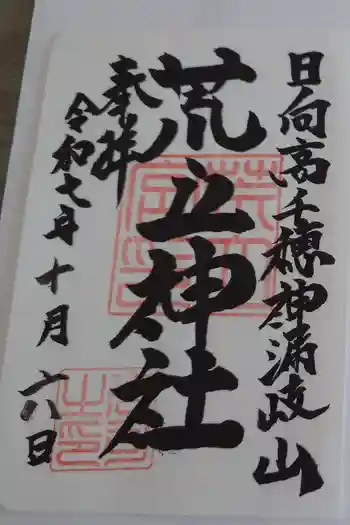 日向高千穂神漏岐山
荒立神社
奉拝
令和七年十月六日